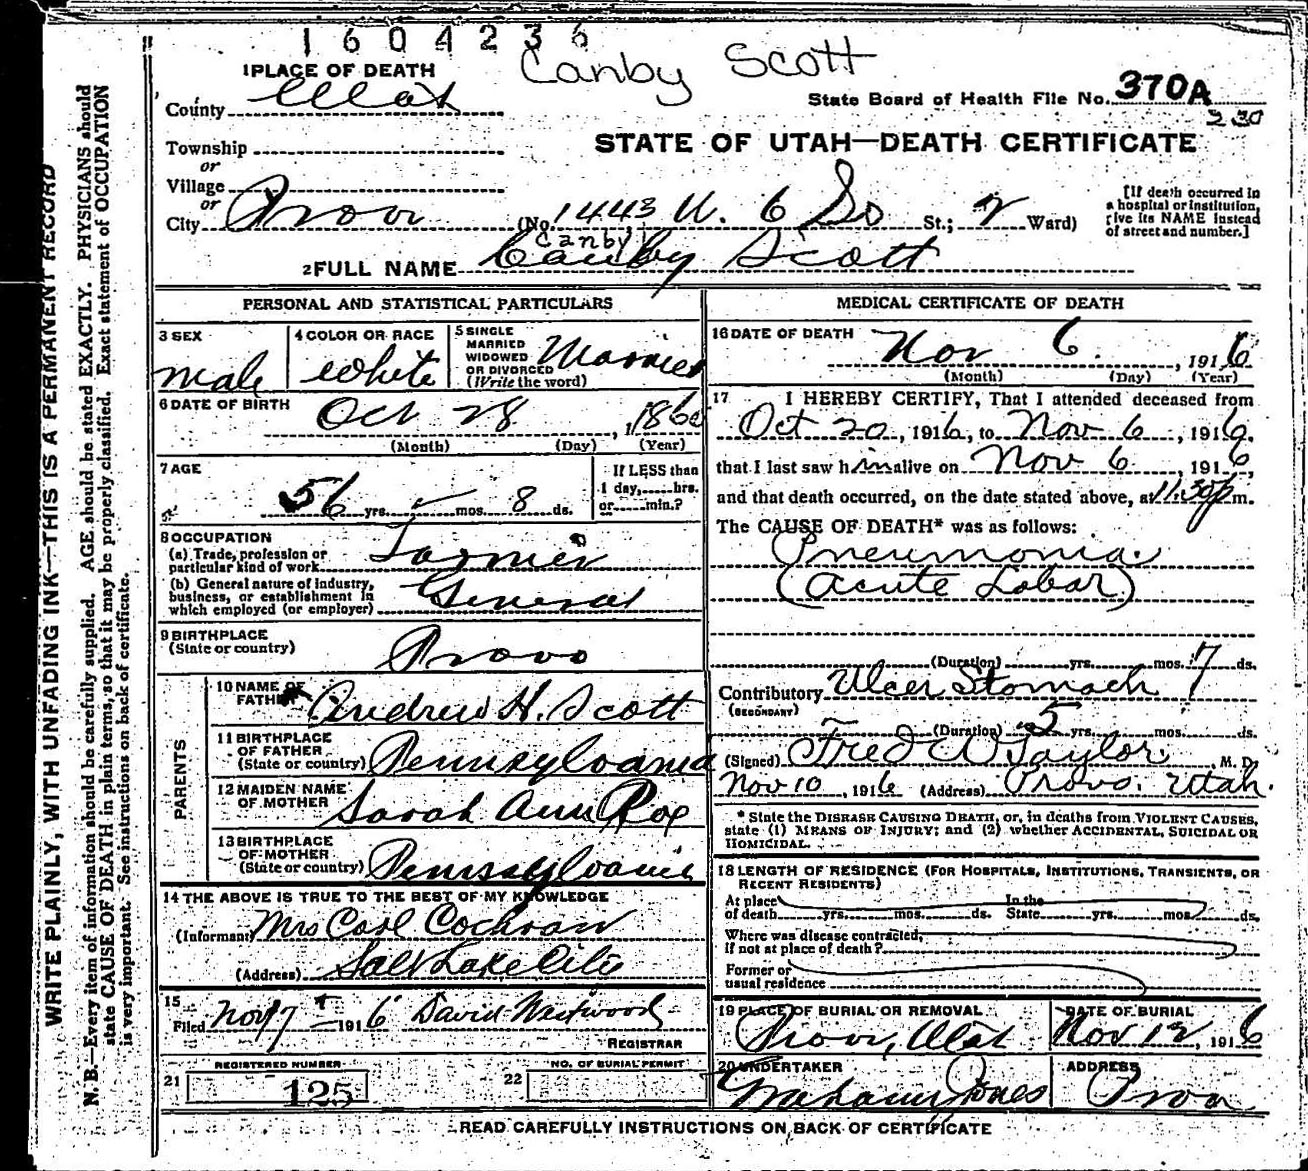 1604236
Canby Scott
1 PLACE OF DEATH
County Utah
State Board of Health File No. 370A
230
STATE OF UTAH—DEATH CERTIFICATE
Township
or
Village
or
City Provo (No. 1443 W. 6 So St.; 2 Ward)
[If death occurred in
a hospital or institution,
give its NAME instead
of street and number.]
canby
2 FULL NAME Canby Scott
PERSONAL AND STATISTICAL PARTICULARS
3 SEX
male
4 COLOR OR RACE
white
5 SINGLE
MARRIED
WIDOWED
OR DIVORCED
(Write the word)
Married
6 DATE OF BIRTH
Oct 28, 1860
(Month) (Day) (Year)
7 AGE
56 yrs. – mos. 8 ds.
If LESS than
1 day,......hrs.
or......min.?
8 OCCUPATION
(a) Trade, profession or
particular kind of work Farmer
(b) General nature of industry,
business, or establishment in
which employed (or employer) General
9 BIRTHPLACE
(State or country) Provo
PARENTS
10 NAME OF
FATHER Andrew H. Scott
11 BIRTHPLACE
OF FATHER
(State or country) Pennsylvania
12 MAIDEN NAME
OF MOTHER Sarah Ann Roe
13 BIRTHPLACE
OF MOTHER
(State or country) Pennsylvania
14 THE ABOVE IS TRUE TO THE BEST OF MY KNOWLEDGE
(Informant) Mrs Carl Cochran
(Address) Salt Lake City
15
Filed Nov 7 1916 David Westwood
REGISTRAR
REGISTERED NUMBER
21 125
NO. OF BURIAL PERMIT
22
MEDICAL CERTIFICATE OF DEATH
16 DATE OF DEATH
Nov 6, 1916
(Month) (Day) (Year)
17 I HEREBY CERTIFY, That I attended deceased from
Oct 20, 1916, to Nov 6, 1916,
that I last saw him alive on Nov 6, 1916,
and that death occurred, on the date stated above, at 11.30 p m.
The CAUSE OF DEATH* was as follows:
Pneumonia
(acute Lobar)
(Duration) yrs. mos. 7 ds.
Contributory Ulcer Stomach
(SECONDARY)
(Duration) 5 yrs. mos. ds.
(Signed) Fred W Taylor, M. D.
Nov 10, 1916 (Address) Provo. Utah.
* State the DISEASE CAUSING DEATH, or, in deaths from VIOLENT CAUSES,
state (1) MEANS OF INJURY; and (2) whether ACCIDENTAL, SUICIDAL OR
HOMICIDAL.
18 LENGTH OF RESIDENCE (FOR HOSPITALS, INSTITUTIONS, TRANSIENTS, OR
RECENT RESIDENTS)
At place In the
of death yrs. mos. ds. State yrs. mos. ds.
Where was disease contracted,
if not at place of death?
Former or
usual residence
19 PLACE OF BURIAL OR REMOVAL
Provo, Utah
DATE OF BURIAL
Nov 12, 1916
20 UNDERTAKER
Jones
ADDRESS
Provo
READ CAREFULLY INSTRUCTIONS ON BACK OF CERTIFICATE
WRITE PLAINLY, WITH UNFADING INK—THIS IS A PERMANENT RECORD
N. B.—Every item of information should be carefully supplied. AGE should be stated EXACTLY. PHYSICIANS should
state CAUSE OF DEATH in plain terms, so that it may be properly classified. Exact statement of OCCUPATION
is very important. See instructions on back of certificate.